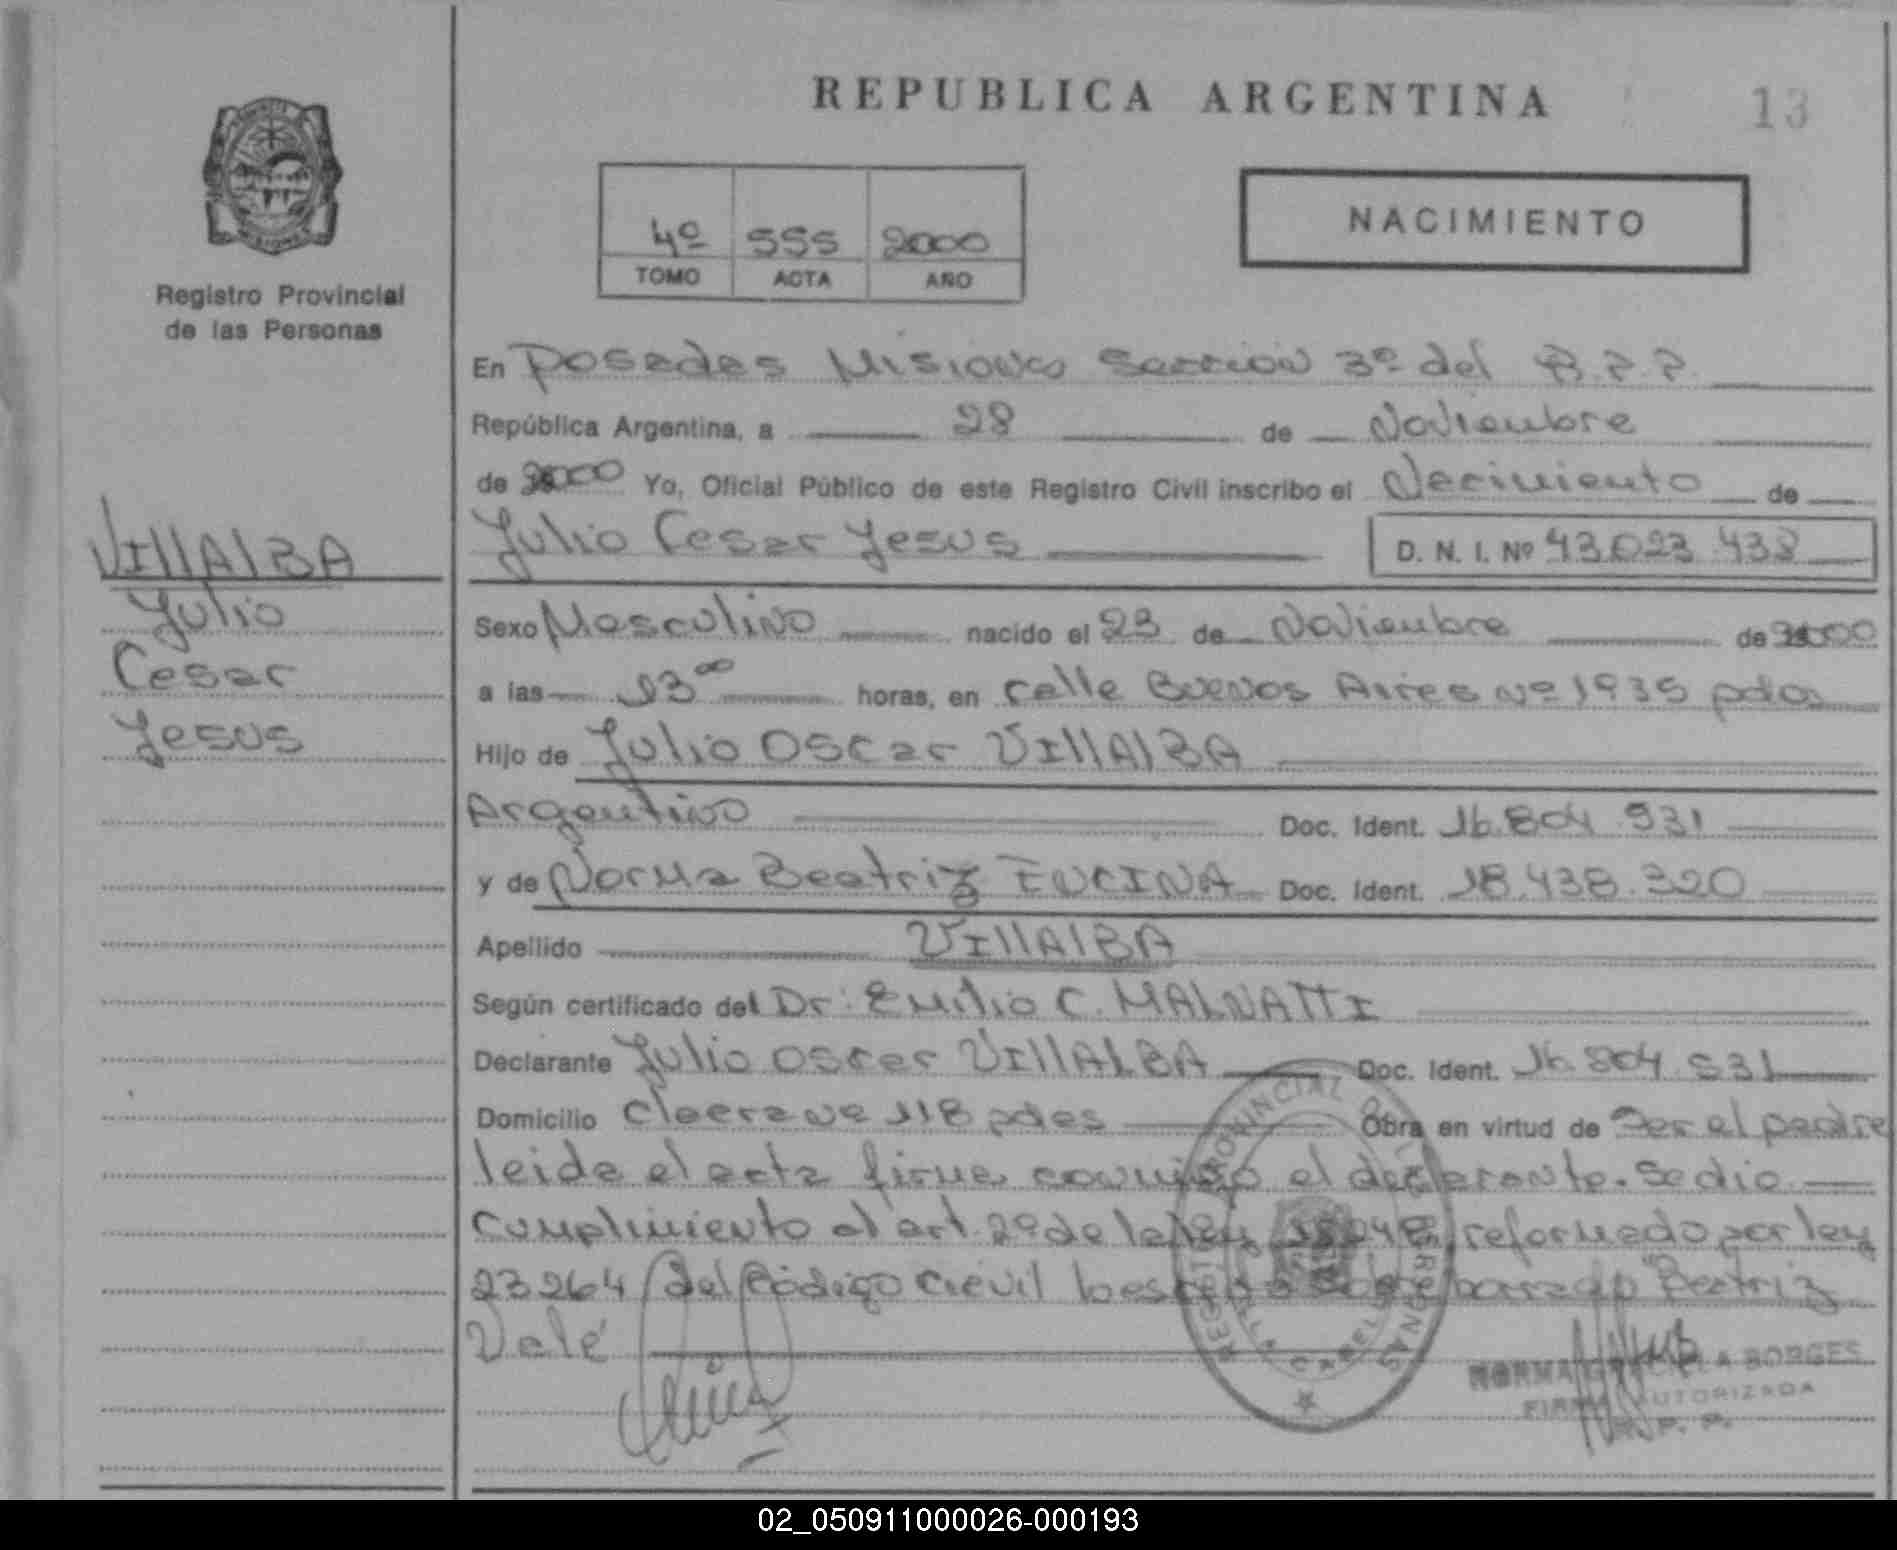 REPUBLICA ARGENTINA
13
MISIONES
Registro Provincial
de las Personas
4º 555 2000
TOMO ACTA AÑO
NACIMIENTO
En Posadas Misiones Seccion 3º del R.P.P.
República Argentina, a 28 de Noviembre
de 2000 Yo, Oficial Público de este Registro Civil inscribo el Nacimiento de
Julio Cesar Jesus D. N. I. Nº 43.023.438
VIllAlBA
Julio
Cesar
Jesus
Sexo Masculino nacido el 23 de Noviembre de 2000
a las 13⁰⁰ horas, en calle Buenos Aires nº 1935 pdas
Hijo de Julio Oscar VIllAlBA
Argentino Doc. Ident. 16.804.931
y de Norma Beatriz ENCINA Doc. Ident. 18.438.320
Apellido VIllAlBA
Según certificado del Dr: Emilio C. MALNATTI
Declarante Julio Oscar VIllALBA Doc. Ident. 16.804.931
Domicilio 118 pdas Obra en virtud de ser el padre
leida el acta firma conmigo el declarante. Se dio
cumplimiento al art. 2º de la ley 18248 reformado por ley
23264 del Código Civil sobre borrado "Beatriz
Vale
REGISTRO PROVINCIAL DE LAS PERSONAS
NORMA GRACIELA BORGES
FIRMA AUTORIZADA
R. P. P.
02_050911000026-000193